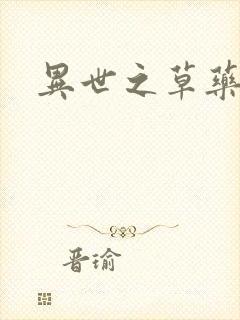 異世之草藥
晋瑜